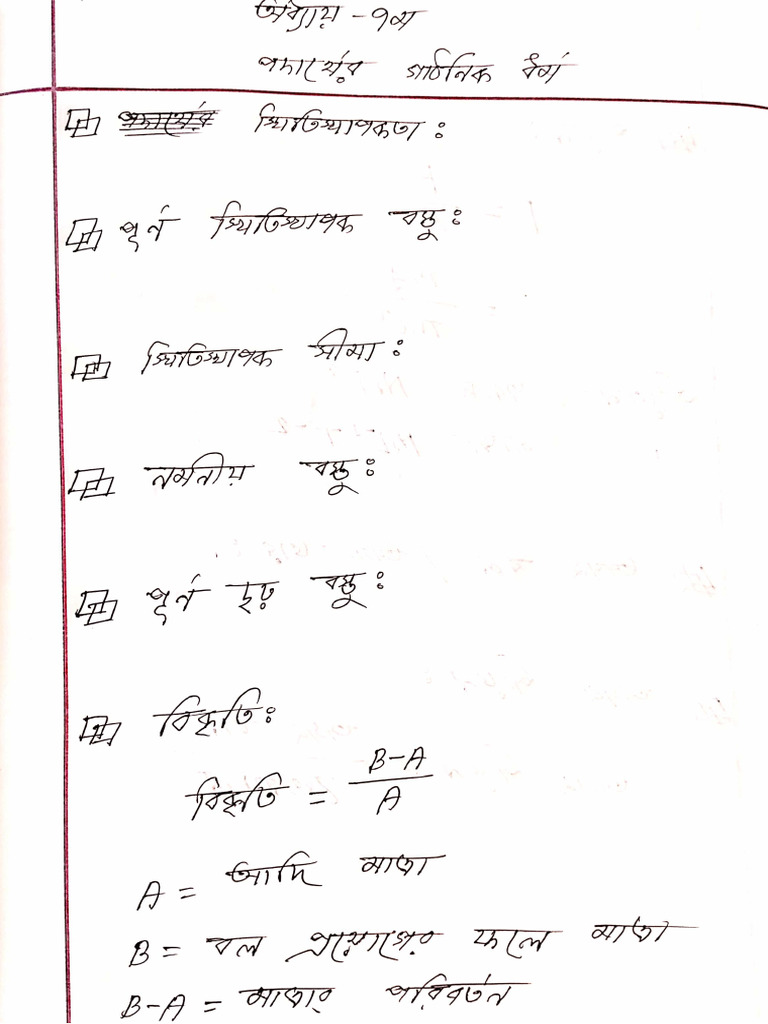 অধ্যায় - ৭ম
পদার্থের গাঠনিক ধর্ম
স্থিতিস্থাপকতা :
পূর্ন স্থিতিস্থাপক বস্তু :
স্থিতিস্থাপক সীমা :
নমনীয় বস্তু :
পূর্ন দৃঢ় বস্তু :
বিকৃতি :
বিকৃতি = B-A / A
A = আদি মাত্রা
B = বল প্রয়োগের ফলে মাত্রা
B-A = মাত্রার পরিবর্তন